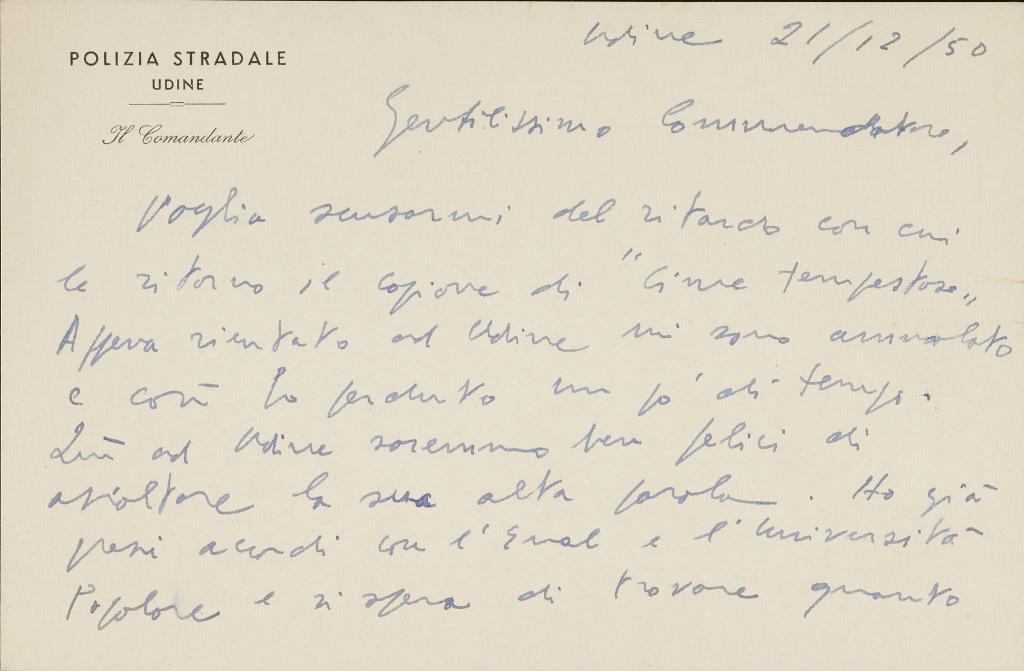 POLIZIA STRADALE
UDINE
Il Comandante
Udine 21/12/50
Gentilissimo Commendatore,
voglia scusarmi del ritardo con cui
le ritorno il copione di "Cime tempestose"
Appena rientrato ad Udine mi sono ammalato
e così ho perduto un pó di tempo.
Quì ad Udine saremmo ben felici di
ascoltare la sua alta parola. Ho già
presi accordi con l'Enal e l'Università
Popolare e si spera di trovare quanto